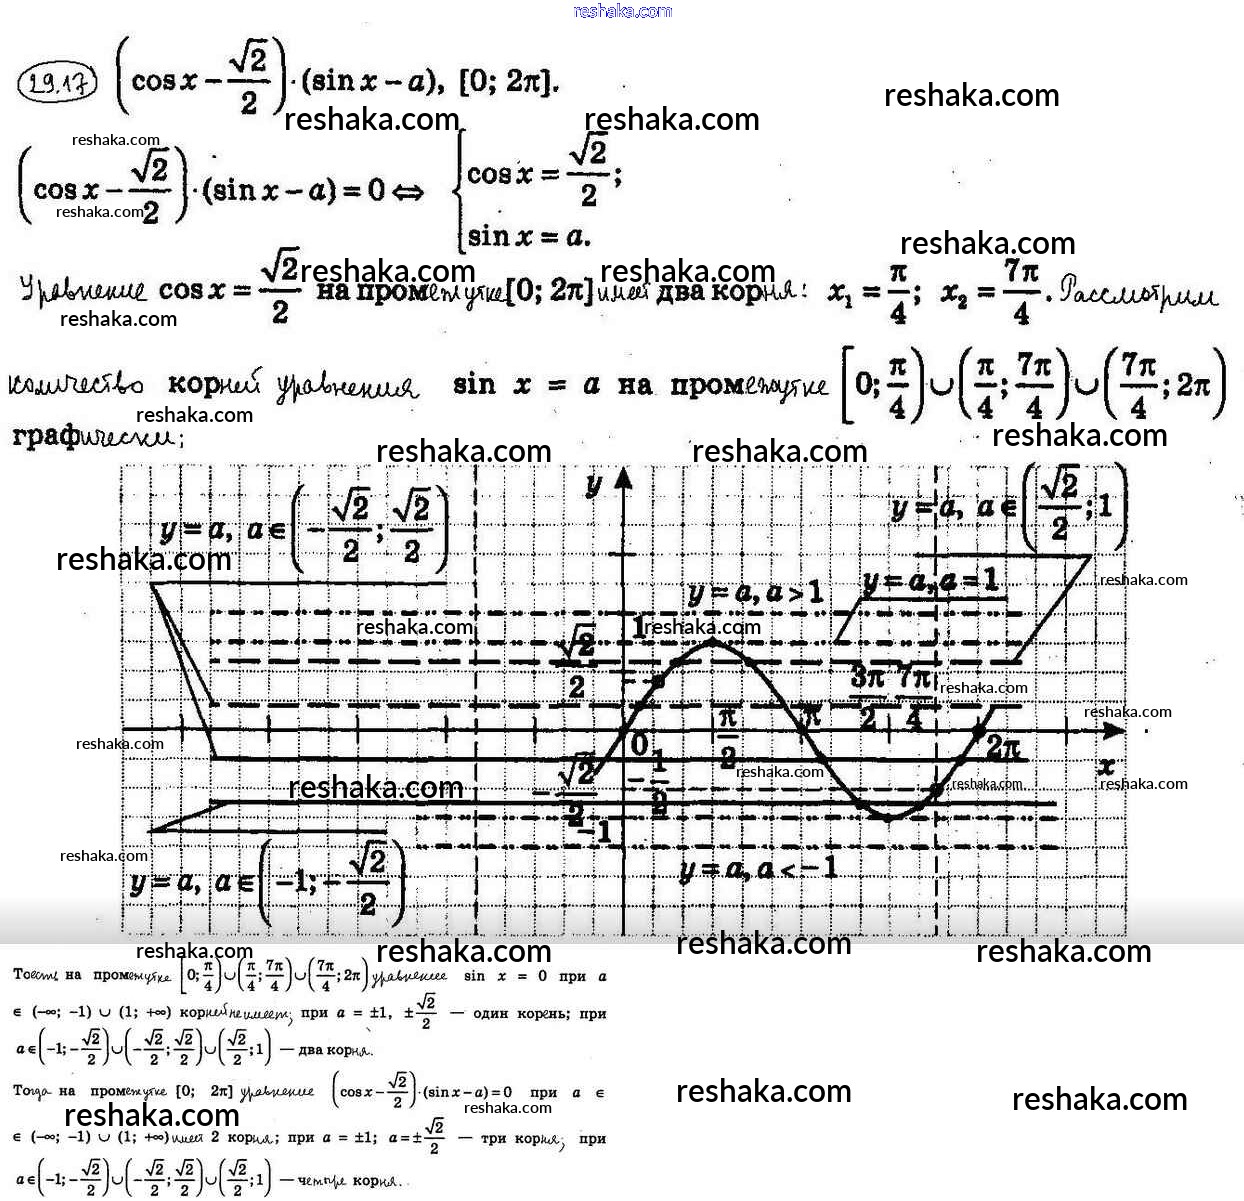 reshaka.com
29.17 (cos x − √2/2)·(sin x − a), [0; 2π].
reshaka.com reshaka.com reshaka.com
reshaka.com
(cos x − √2/2)·(sin x − a) = 0 ⇔ { cos x = √2/2; sin x = a.
reshaka.com
reshaka.com
reshaka.com reshaka.com
Уравнение cos x = √2/2 на промежутке [0; 2π] имеет два корня: x₁ = π/4; x₂ = 7π/4. Рассмотрим
reshaka.com
количество корней уравнения sin x = a на промежутке [0; π/4) ∪ (π/4; 7π/4) ∪ (7π/4; 2π)
reshaka.com
графически:
reshaka.com reshaka.com reshaka.com
y
y = a, a ∈ (−√2/2; √2/2)
y = a, a ∈ (√2/2; 1)
reshaka.com
y = a, a > 1
y = a, a = 1
reshaka.com
reshaka.com 1 reshaka.com
√2/2
3π/2 7π/4 reshaka.com
reshaka.com
0 π/2 π 2π
reshaka.com
x
−√2/2 −1/2
reshaka.com reshaka.com reshaka.com reshaka.com
−1
reshaka.com
y = a, a < −1
y = a, a ∈ (−1; −√2/2)
reshaka.com reshaka.com reshaka.com reshaka.com
Тоесть на промежутке [0; π/4) ∪ (π/4; 7π/4) ∪ (7π/4; 2π) уравнение sin x = 0 при a
∈ (−∞; −1) ∪ (1; +∞) корней не имеет; при a = ±1, ±√2/2 — один корень; при
a ∈ (−1; −√2/2) ∪ (−√2/2; √2/2) ∪ (√2/2; 1) — два корня.
Тогда на промежутке [0; 2π] уравнение (cos x − √2/2)·(sin x − a) = 0 при a ∈
reshaka.com reshaka.com reshaka.com reshaka.com
∈ (−∞; −1) ∪ (1; +∞) имеет 2 корня; при a = ±1; a = ±√2/2 — три корня; при
a ∈ (−1; −√2/2) ∪ (−√2/2; √2/2) ∪ (√2/2; 1) — четыре корня.